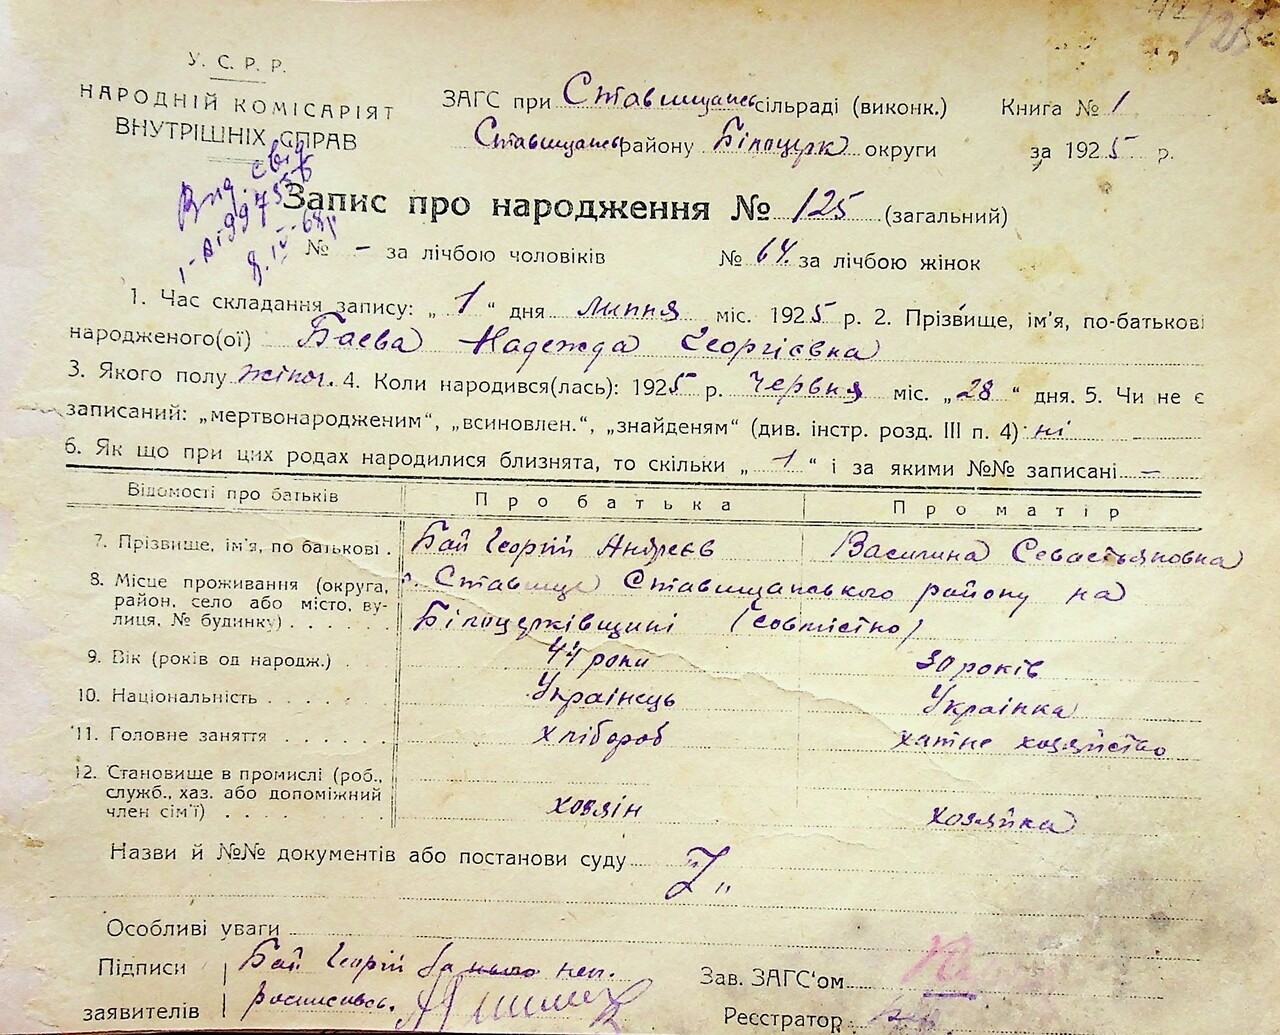 125
У. С. Р. Р.
НАРОДНІЙ КОМІСАРІЯТ
ВНУТРІШНІХ СПРАВ
ЗАГС при Ставищанс сільраді (виконк.) Книга № 1
Ставищанс району Білоцерк округи за 1925 р.
Вид. свід
Запис про народження № 125 (загальний)
8.IV-68
№ – за лічбою чоловіків № 64. за лічбою жінок
1. Час складання запису: „ 1 “ дня липня міс. 1925 р. 2. Прізвище, ім'я, по-батькові
народженого(ої) Баєва Надежда Георгієвна
3. Якого полу жіноч. 4. Коли народився(лась): 1925 р. червня міс. „28“ дня. 5. Чи не є
записаний: „мертвонародженим“, „всиновлен.“, „знайденям“ (див. інстр. розд. III п. 4) ні
6. Як що при цих родах народилися близнята, то скільки „ 1 “ і за якими №№ записані –
Відомості про батьків Про батька Про матір
7. Прізвище, ім'я, по батькові . Бай Георгій Андреєв Василина Севастьяновна
8. Місце проживання (округа, район, село або місто, вулиця, № будинку) . . . . . с. Ставище Ставищанського району на
Білоцерківщині (совмістно)
9. Вік (років од народж.) . 44 роки 30 років
10. Національність . . . . . Українець Українка
11. Головне заняття . . . . . хлібороб хатнє хозяйство
12. Становище в промислі (роб., служб., хаз. або допоміжний член сім'ї) . . . . . хозяін хозяйка
Назви й №№ документів або постанови суду
Особливі уваги
Підписи Бай Георгій за нього неп. Зав. ЗАГС'ом
заявителів росписовсь. Реєстратор